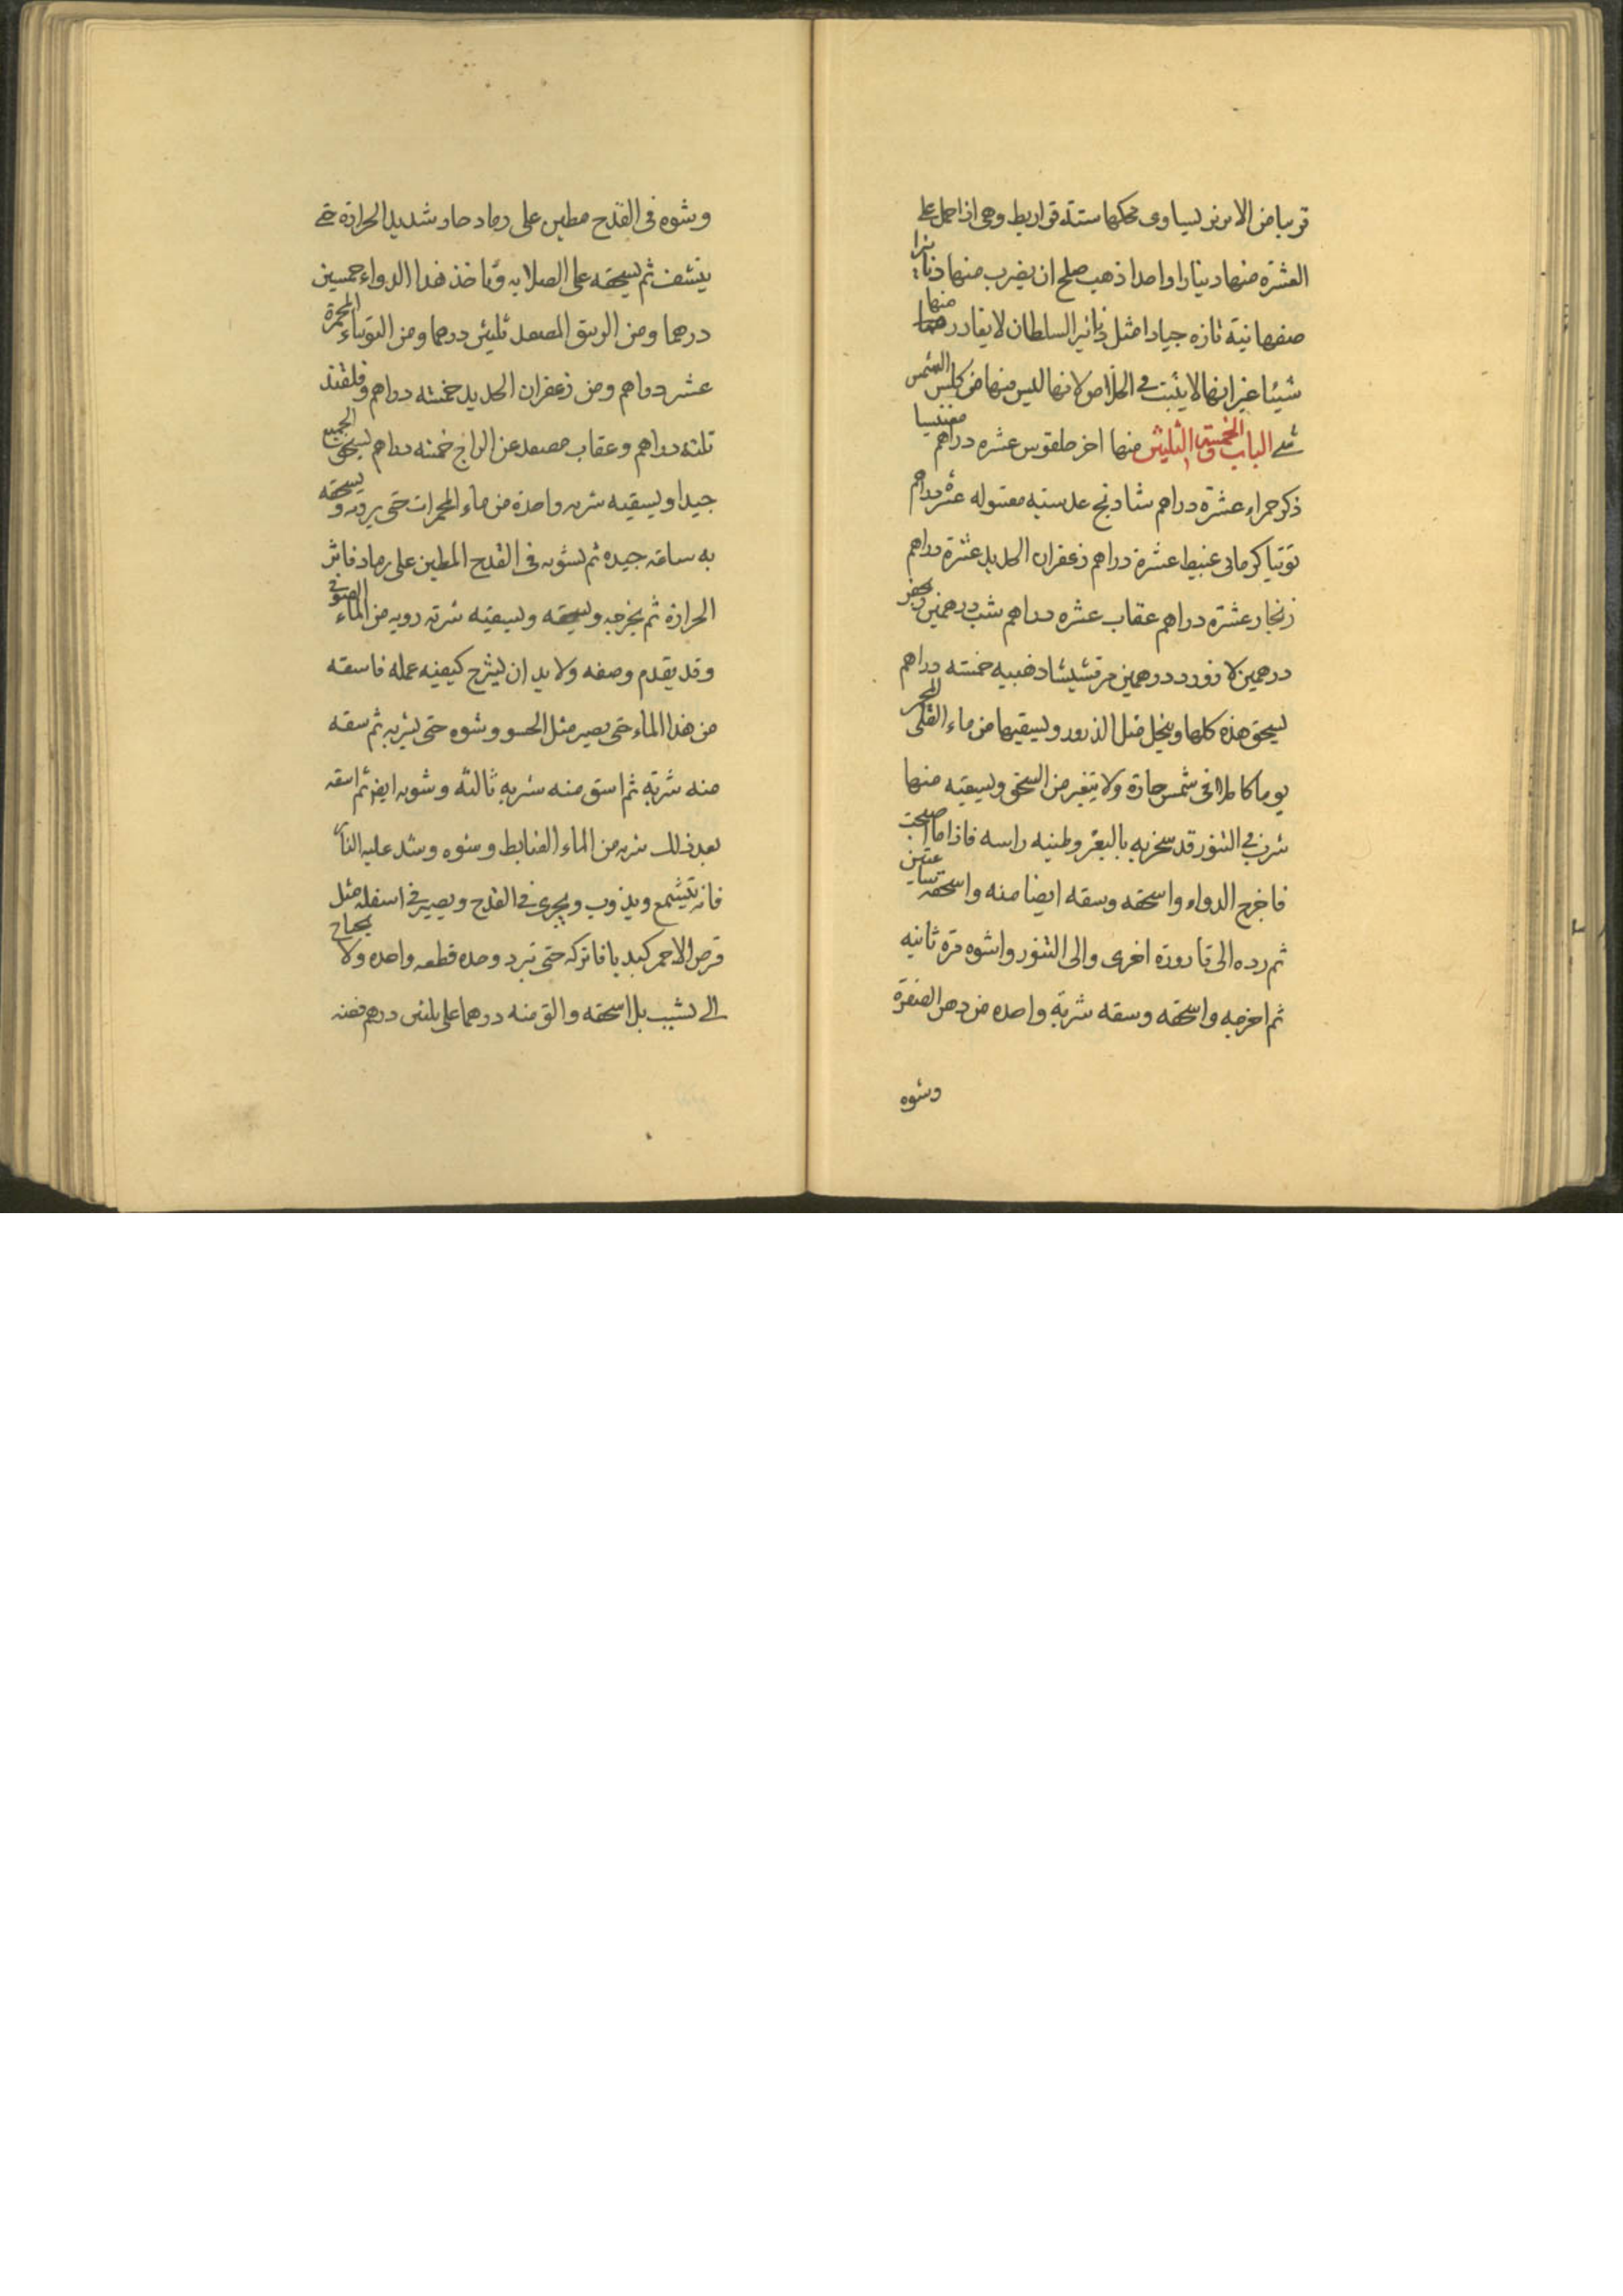 قريبا من الابريز ليساوى محكها ستة قراريط وهى اذا حمل على
العشرة منها دينارا واحدا ذهب صلح ان يضرب منها دنانيرا
صفهانية تازه جيادا مثل دنانير السلطان لا يغادر منها
شيئا غير انها لا يثبت في الخلاص لانها ليس منها من كلس الشمس
شے الباب الخمسة والثلثين منها اخر طلقوس عشره دراهم مغنيسيا
ذكر حمراء عشرة دراهم شادنج عدسيه مغسوله عشر دراهم
توتيا كرمانى غبيط عشرة دراهم زعفران الحديد عشرة دراهم
زنجار عشرة دراهم عقاب عشره دراهم شب درهمين
درهمين لازورد درهمين مرقشيشا ذهبيه خمسته دراهم
يسحق هذه كلها وينخل مثل الذرور ويسقيها من ماء القلى المحمر
يوما كاملا فى شمس حارة ولا يتغير من السحق ويسقيه منها
شرب في التنور قد سخر به بالبعر وطينه راسه فاذا ما اصبحت
فاخرج الدواء واسحقه وسقه ايضا منه واسحقه
ثم رده الى قاروره اخرى والى التنور واشوه مرة ثانيه
ثم اخرجه واسحقه وسقه شربة واحده من دهن الصفرة
وشوه
وشوه فى القدح مطين على رماد حاد شديد الحرارة حتى
ينشف ثم يسحقه على الصلايه وتاخذ هذا الدواء خمسين
درهما ومن الزيبق المصعد ثلثين درهما ومن التوتياء المحمرة
عشر دراهم ومن زعفران الحديد خمسته دراهم وقلقند
ثلثه دراهم وعقاب مصعد عن الزاج خمسه دراهم يسحق الجميع
جيدا ويسقيه شربه واحدة من ماء المحمرات حتى يرويه ويسحقه
به ساعه جيده ثم يشويه فى القدح المطين على رماد فاتر
الحرارة ثم يخرجه ويسحقه ويسقيه شربه رويه من الماء
وقد يقدم وصفه ولابد ان يشرح كيفيه عمله فاسقه
من هذا الماء حتى يصير مثل الحسو وشوه حتى يشربه ثم سقه
منه شربة ثم اسق منه شربه ثالثه وشويه ايض ثم اسقه
بعد ذلك شربه من الماء الضابط وشوه وشد عليه النار
فانه يتشمع ويذوب ويجرى في القدح ويصير في اسفله مثل
قرص الاحمر كبديا فاتركه حتى تبرد وحده قطعه واحده ولا يحتاج
الى تشبيب بل اسحقه والق منه درهما على ثلثين درهم فضه